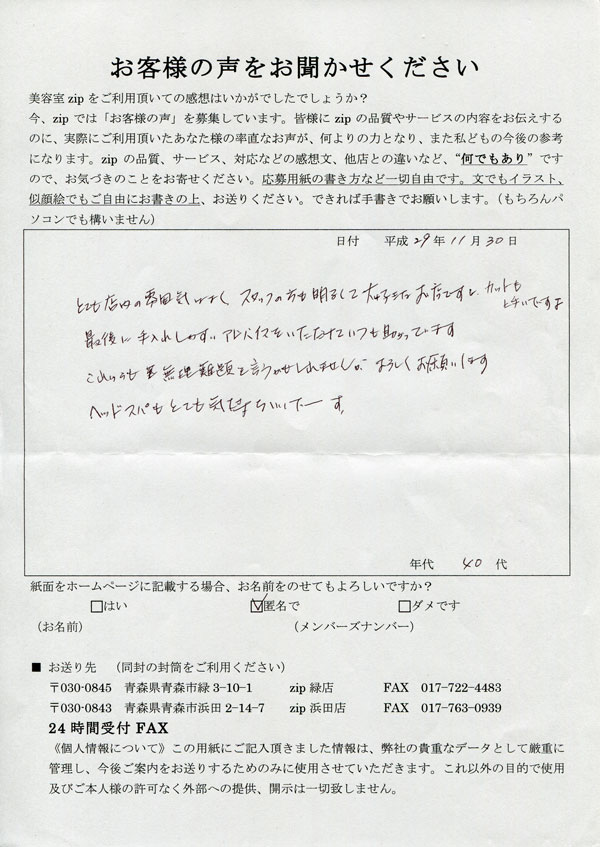 お客様の声をお聞かせください
美容室 zip をご利用頂いての感想はいかがでしたでしょうか？
今、zip では「お客様の声」を募集しています。皆様に zip の品質やサービスの内容をお伝えする
のに、実際にご利用頂いたあなた様の率直なお声が、何よりの力となり、また私どもの今後の参考
になります。zip の品質、サービス、対応などの感想文、他店との違いなど、“何でもあり”です
ので、お気づきのことをお寄せください。応募用紙の書き方など一切自由です。文でもイラスト、
似顔絵でもご自由にお書きの上、お送りください。できれば手書きでお願いします。（もちろんパ
ソコンでも構いません）
日付 平成 29 年 11 月 30 日
とても店内の雰囲気はよく スタッフの方も明るくて 大好きなお店です カットも
上手いですよ
最後に 手入れしやすい アドバイスをいただけていつも助かっています
これからも 無理難題を言うかもしれませんが よろしくお願いします
ヘッドスパもとても気持ちいいでーす。
年代 40 代
紙面をホームページに記載する場合、お名前をのせてもよろしいですか？
□はい ☑匿名で □ダメです
（お名前） （メンバーズナンバー）
■ お送り先 （同封の封筒をご利用ください）
〒030-0845 青森県青森市緑 3-10-1 zip 緑店 FAX 017-722-4483
〒030-0843 青森県青森市浜田 2-14-7 zip 浜田店 FAX 017-763-0939
24 時間受付 FAX
《個人情報について》この用紙にご記入頂きました情報は、弊社の貴重なデータとして厳重に
管理し、今後ご案内をお送りするためのみに使用させていただきます。これ以外の目的で使用
及びご本人様の許可なく外部への提供、開示は一切致しません。